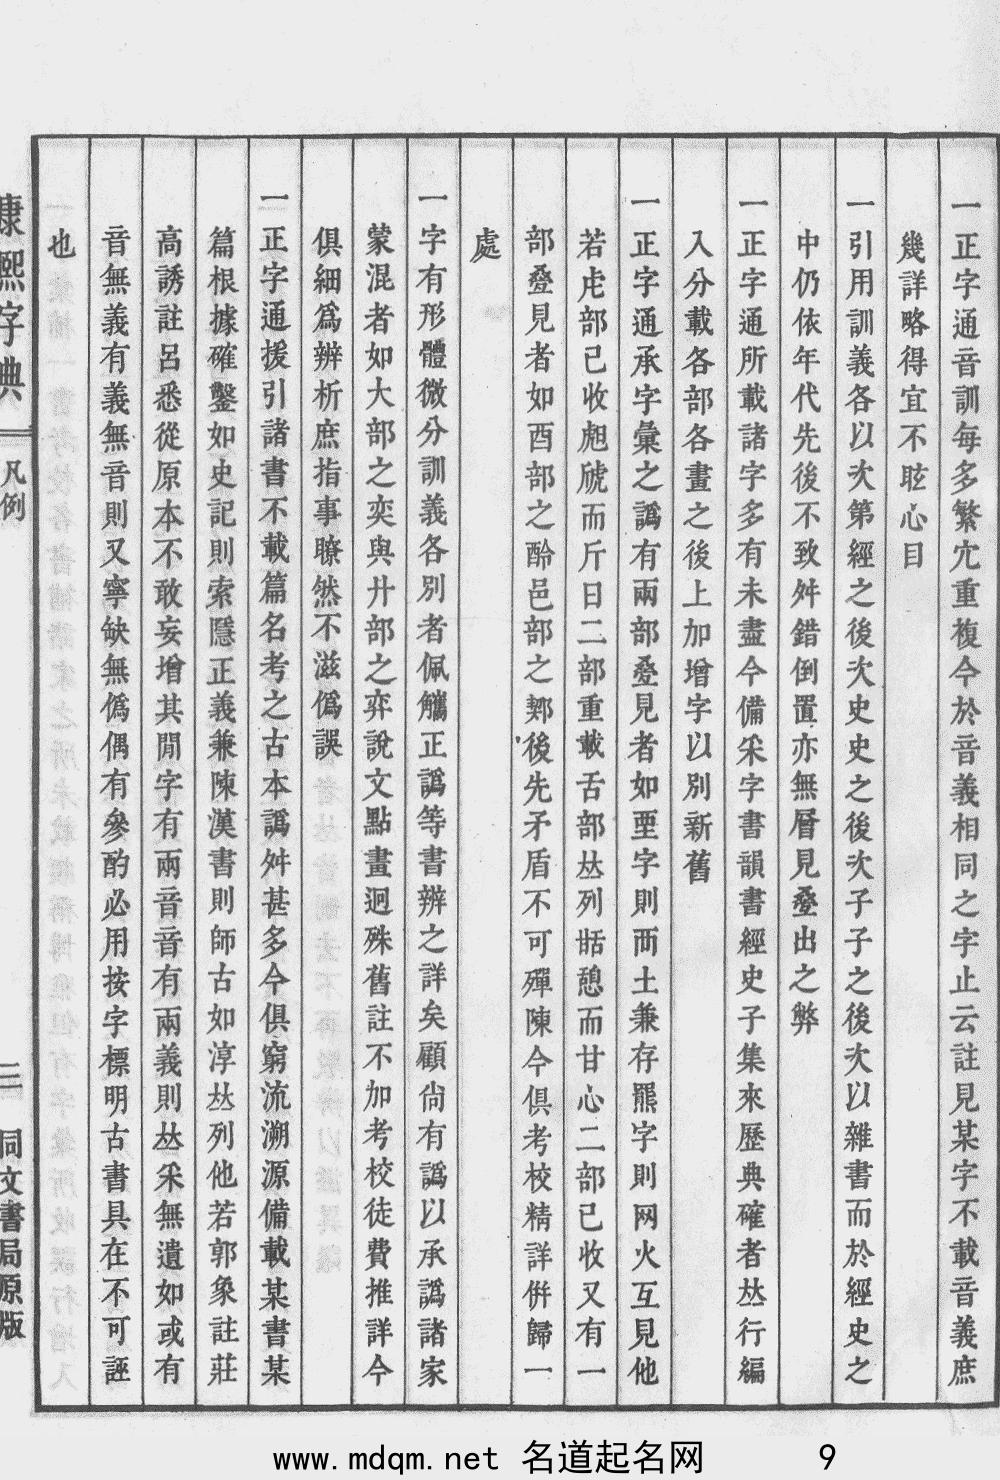 一正字通音訓每多繁冗重複今於音義相同之字止云註見某字不載音義庶
幾詳略得宜不眩心目
一引用訓義各以次第經之後次史史之後次子子之後次以雜書而於經史之
中仍依年代先後不致舛錯倒置亦無層見疊出之弊
一正字通所載諸字多有未盡今備采字書韻書經史子集來歷典確者𠀤行編
入分載各部各畫之後上加增字以別新舊
一正字通承字彙之譌有兩部疊見者如垔字則襾土兼存羆字則网火互見他
若虍部已收虒虓而斤日二部重載舌部𠀤列甛憩而甘心二部已收又有一
部疊見者如酉部之酧邑部之鄸後先矛盾不可殫陳今俱考校精詳倂歸一
處
一字有形體微分訓義各別者佩觿正譌等書辨之詳矣顧尙有譌以承譌諸家
蒙混者如大部之奕與廾部之弈說文點畫迥殊舊註不加考校徒費推詳今
俱細爲辨析庶指事瞭然不滋僞誤
一正字通援引諸書不載篇名考之古本譌舛甚多今俱窮流溯源備載某書某
篇根據確鑿如史記則索隱正義兼陳漢書則師古如淳𠀤列他若郭象註莊
高誘註呂悉從原本不敢妄增其閒字有兩音音有兩義則𠀤采無遺如或有
音無義有義無音則又寧缺無僞偶有參酌必用按字標明古書具在不可誣
也
康熙字典
凡例
三
同文書局原版
www.mdqm.net 名道起名网 9